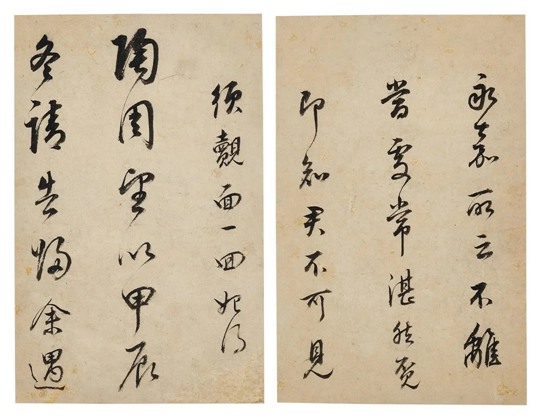 永嘉所云不離
當處常湛然覓
即知君不可見
須覿面一回始得
陶周望以甲辰
冬請告歸余遇